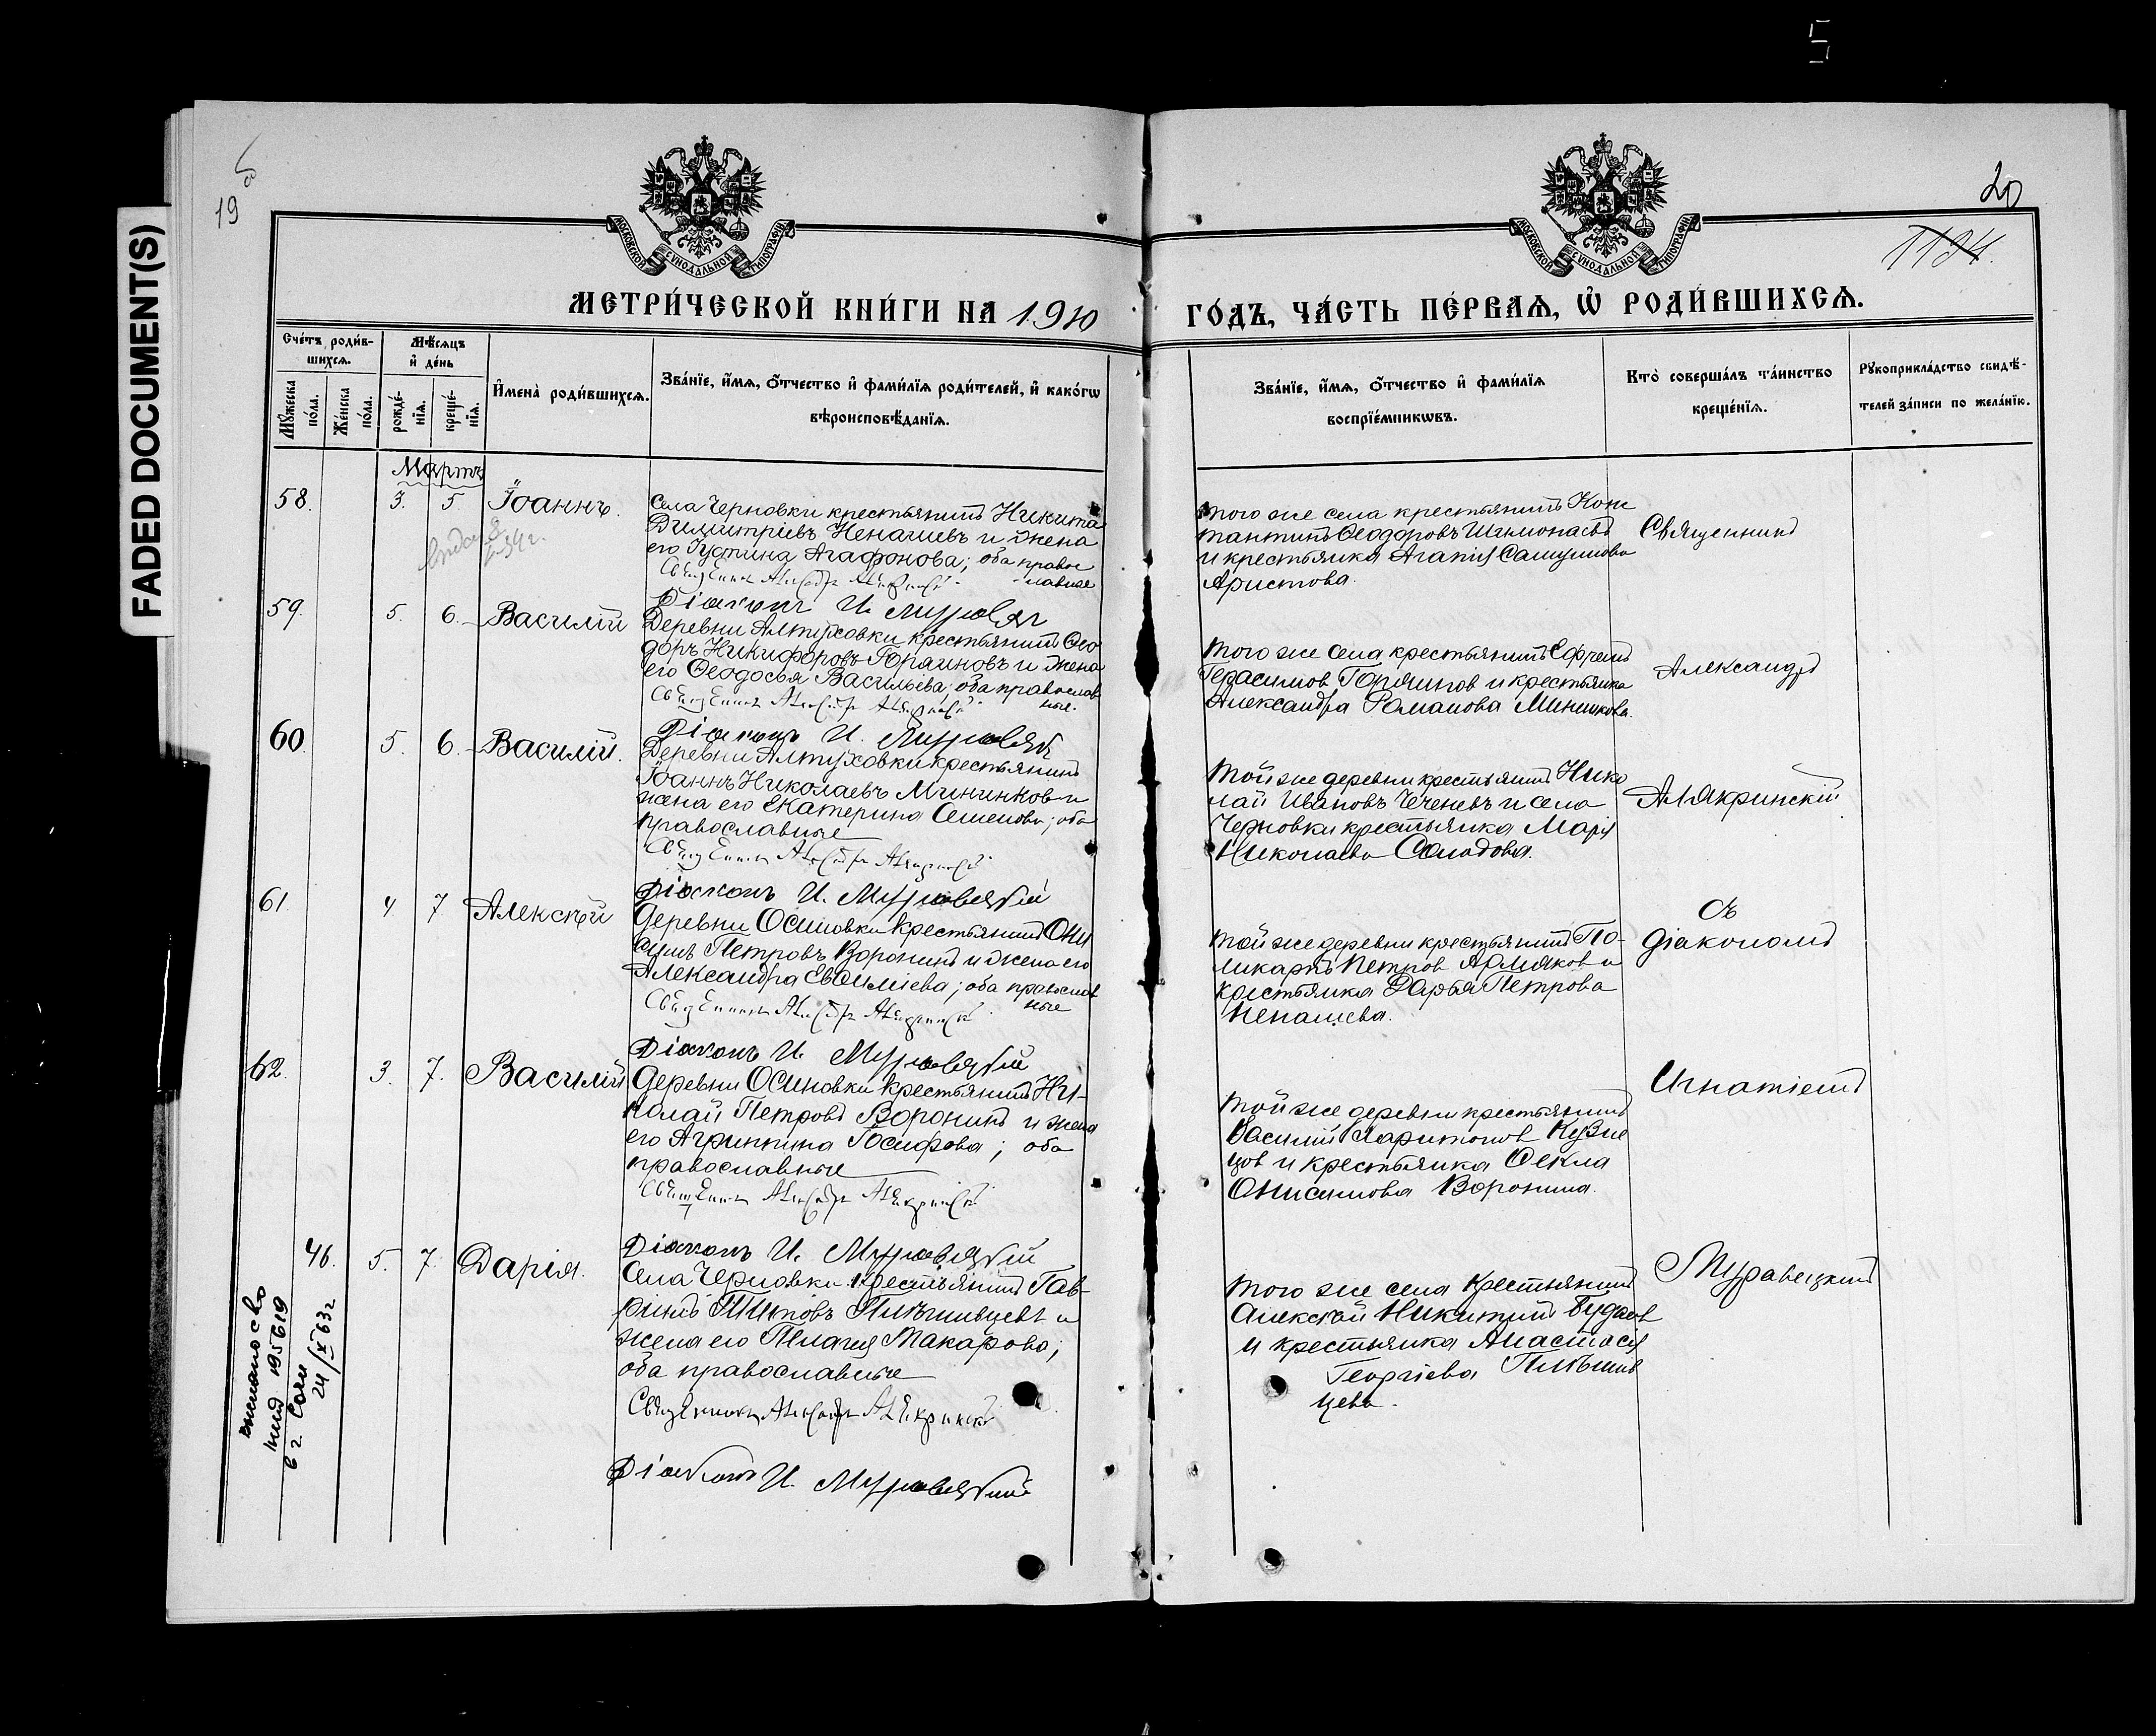 5
FADED DOCUMENT(S)
19
20
1134.
МОСКОВСКОЙ СѴНОДАЛЬНОЙ ТИПОГРАФІИ
МОСКОВСКОЙ СѴНОДАЛЬНОЙ ТИПОГРАФІИ
МЕТРИ́ЧЕСКОЙ КНИ́ГИ НА 1910
ГО́ДЪ, ЧА́СТЬ ПЕ́РВАѦ, Ѡ҆ РОДИ́ВШИХСѦ.
Сче́тъ роди́в-
шихсѧ.
Мѣ́сѧцъ
и҆ де́нь
Мꙋ́жеска
по́ла.
Же́нска
по́ла.
рожде́-
нїѧ.
креще́-
нїѧ.
И҆мена̀ роди́вшихсѧ.
Зва́нїе, и҆́мѧ, о҆́тчество и҆ фами́лїѧ роди́телей, и҆ како́гѡ
вѣроисповѣ́данїѧ.
Зва́нїе, и҆́мѧ, о҆́тчество и҆ фами́лїѧ
воспрїе́мникѡвъ.
Кто̀ соверша́лъ та́инство
креще́нїѧ.
Рꙋкоприкла́дство свидѣ́-
телей за́писи по жела́нїю.
Мартъ
58. 3. 5. Іоаннъ.
Села Черновки крестьянинъ Никита
Димитріевъ Ненашевъ и жена
его Іустина Агафонова; оба правос
лавные
Священникъ Александръ Алякринскій
Діаконъ И. Муравецкій
того же села крестьянинъ Конс
тантинъ Ѳеодоровъ
и крестьянка
Аристова.
Священникъ
59. 5. 6. Василій
Деревни Алтуховки крестьянинъ Ѳео
доръ Никифоровъ Горяиновъ и жена
его Ѳеодосья Васильева; оба православ
ные.
Священникъ Александръ Алякринскій
Діаконъ И. Муравецкій
того же села крестьянинъ Ефремъ
Герасимов Горяинов и крестьянка
Александра Романова Мининкова.
Александръ
60. 5. 6. Василій.
Деревни Алтуховки крестьянинъ
Іоаннъ Николаевъ Мининков и
жена его Екатерина Семенова; оба
православные
Священникъ Александръ Алякринскій
Діаконъ И. Муравецкій
той же деревни крестьянинъ Нико
лай Ивановъ Чеченевъ и села
Черновки крестьянка Марія
Николаева Солодова.
Алякринскій
61. 4. 7. Алексѣй
Деревни Осиновки крестьянинъ Они
симъ Петровъ Воронинъ и жена его
Александра Евѳиміева; оба православ
ные
Священникъ Александръ Алякринскій
Діаконъ И. Муравецкій
той же деревни крестьянинъ По-
ликарпъ Петров Армяков и
крестьянка Дарья Петрова
Ненашева.
съ
діакономъ
62. 3. 7. Василій
Деревни Осиновки крестьянинъ Ни-
колай Петровъ Воронинъ и жена
его Агриппина Іосифова; оба
православные
Священникъ Александръ Алякринскій
Діаконъ И. Муравецкій
той же деревни крестьянинъ
Василій Харитонов Кузне
цов и крестьянка Ѳекла
Онисимова Воронина.
Игнатіемъ
46. 5. 7. Дарія.
Села Черновки крестьянинъ Гав-
ріилъ Титовъ и
жена его Пелагия Макарова;
оба православные
Священникъ Александръ Алякринскій
Діаконъ И. Муравецкій
того же села крестьянинъ
Алексѣй Никитинъ
и крестьянка Анастасія
Георгіева
цева.
Муравецкимъ
выслано св
195619
в г. Сочи
24/X 63г